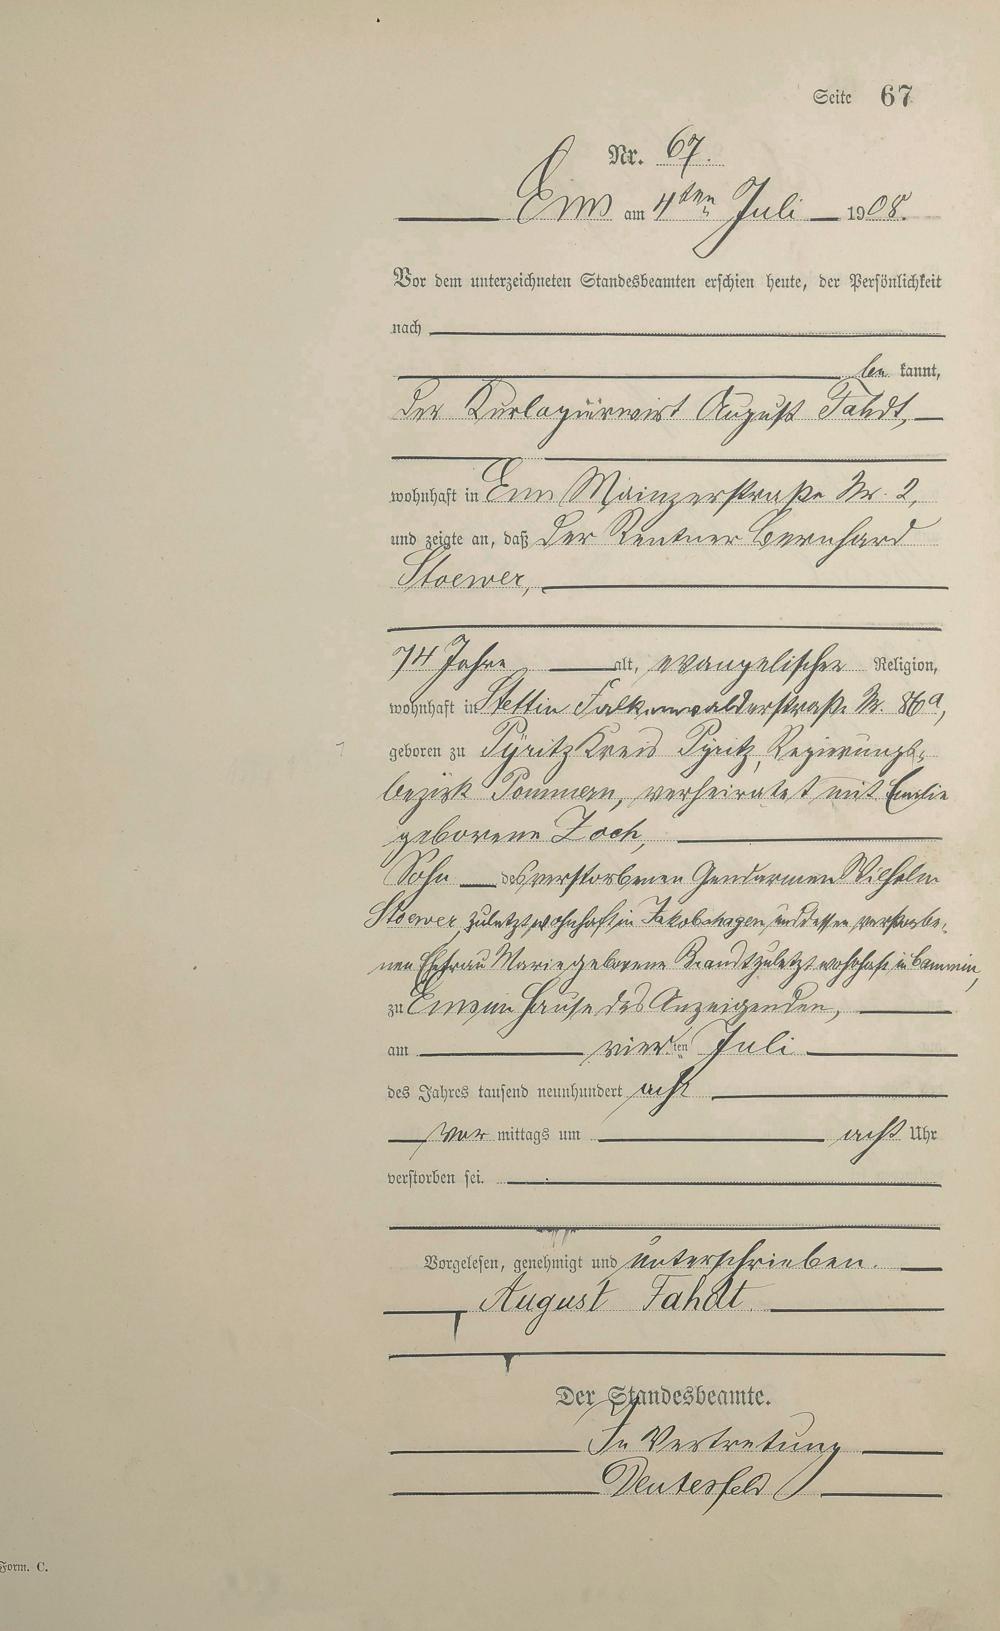 Seite 67
Nr. 67.
Ems am 4ten Juli 1908.
Vor dem unterzeichneten Standesbeamten erschien heute, der Persönlichkeit
nach
be kannt,
der Kurlogierwirt August Fahdt,
wohnhaft in Ems Mainzerstraße Nr. 2,
und zeigte an, daß der Rentner Bernhard
Stoewer,
74 Jahre alt, evangelischer Religion,
wohnhaft in Stettin Falkenwalderstraße Nr. 86a,
geboren zu Pyritz Kreis Pyritz, Regierungs-
bezirk Pommern, verheiratet mit Emilie
geborene Zoch,
Sohn des verstorbenen Gendarmen Wilhelm
Stoewer, zuletzt wohnhaft in Jakobshagen, und dessen verstorbe-
nen Ehefrau Marie geborene Brandt zuletzt wohnhaft in Cammin,
zu Ems im Hause des Anzeigenden,
am vierten Juli
des Jahres tausend neunhundert acht
vor mittags um acht Uhr
verstorben sei.
Vorgelesen, genehmigt und unterschrieben.
August Fahdt
Der Standesbeamte.
In Vertretung
Form. C.